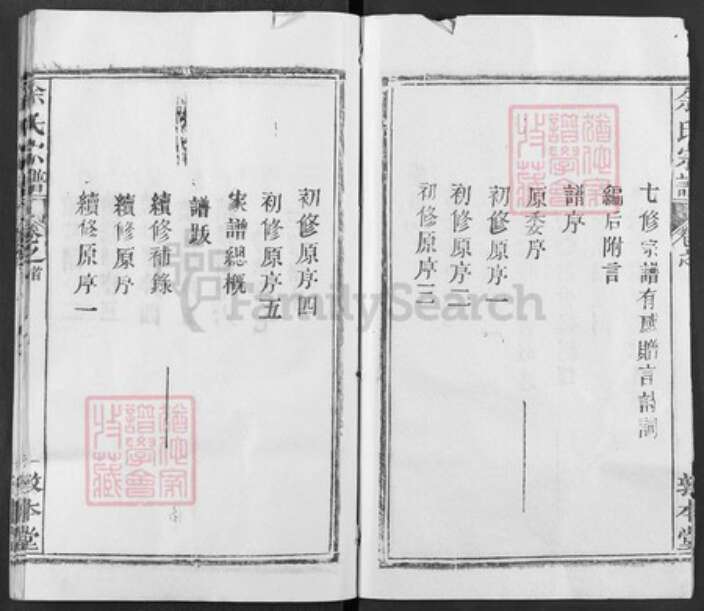 余氏宗譜 卷之
七修宗譜有感贈言詩詞
編后附言
譜序
原委序
初修原序一
初修原序二
初修原序三
敦本堂
初修原序四
初修原序五
家譜總概
譜跋
續修補錄
續修原序
續修原序一
余氏宗譜 卷之首
敦本堂
猶他家譜學會特藏
猶他家譜學會特藏
FamilySearch